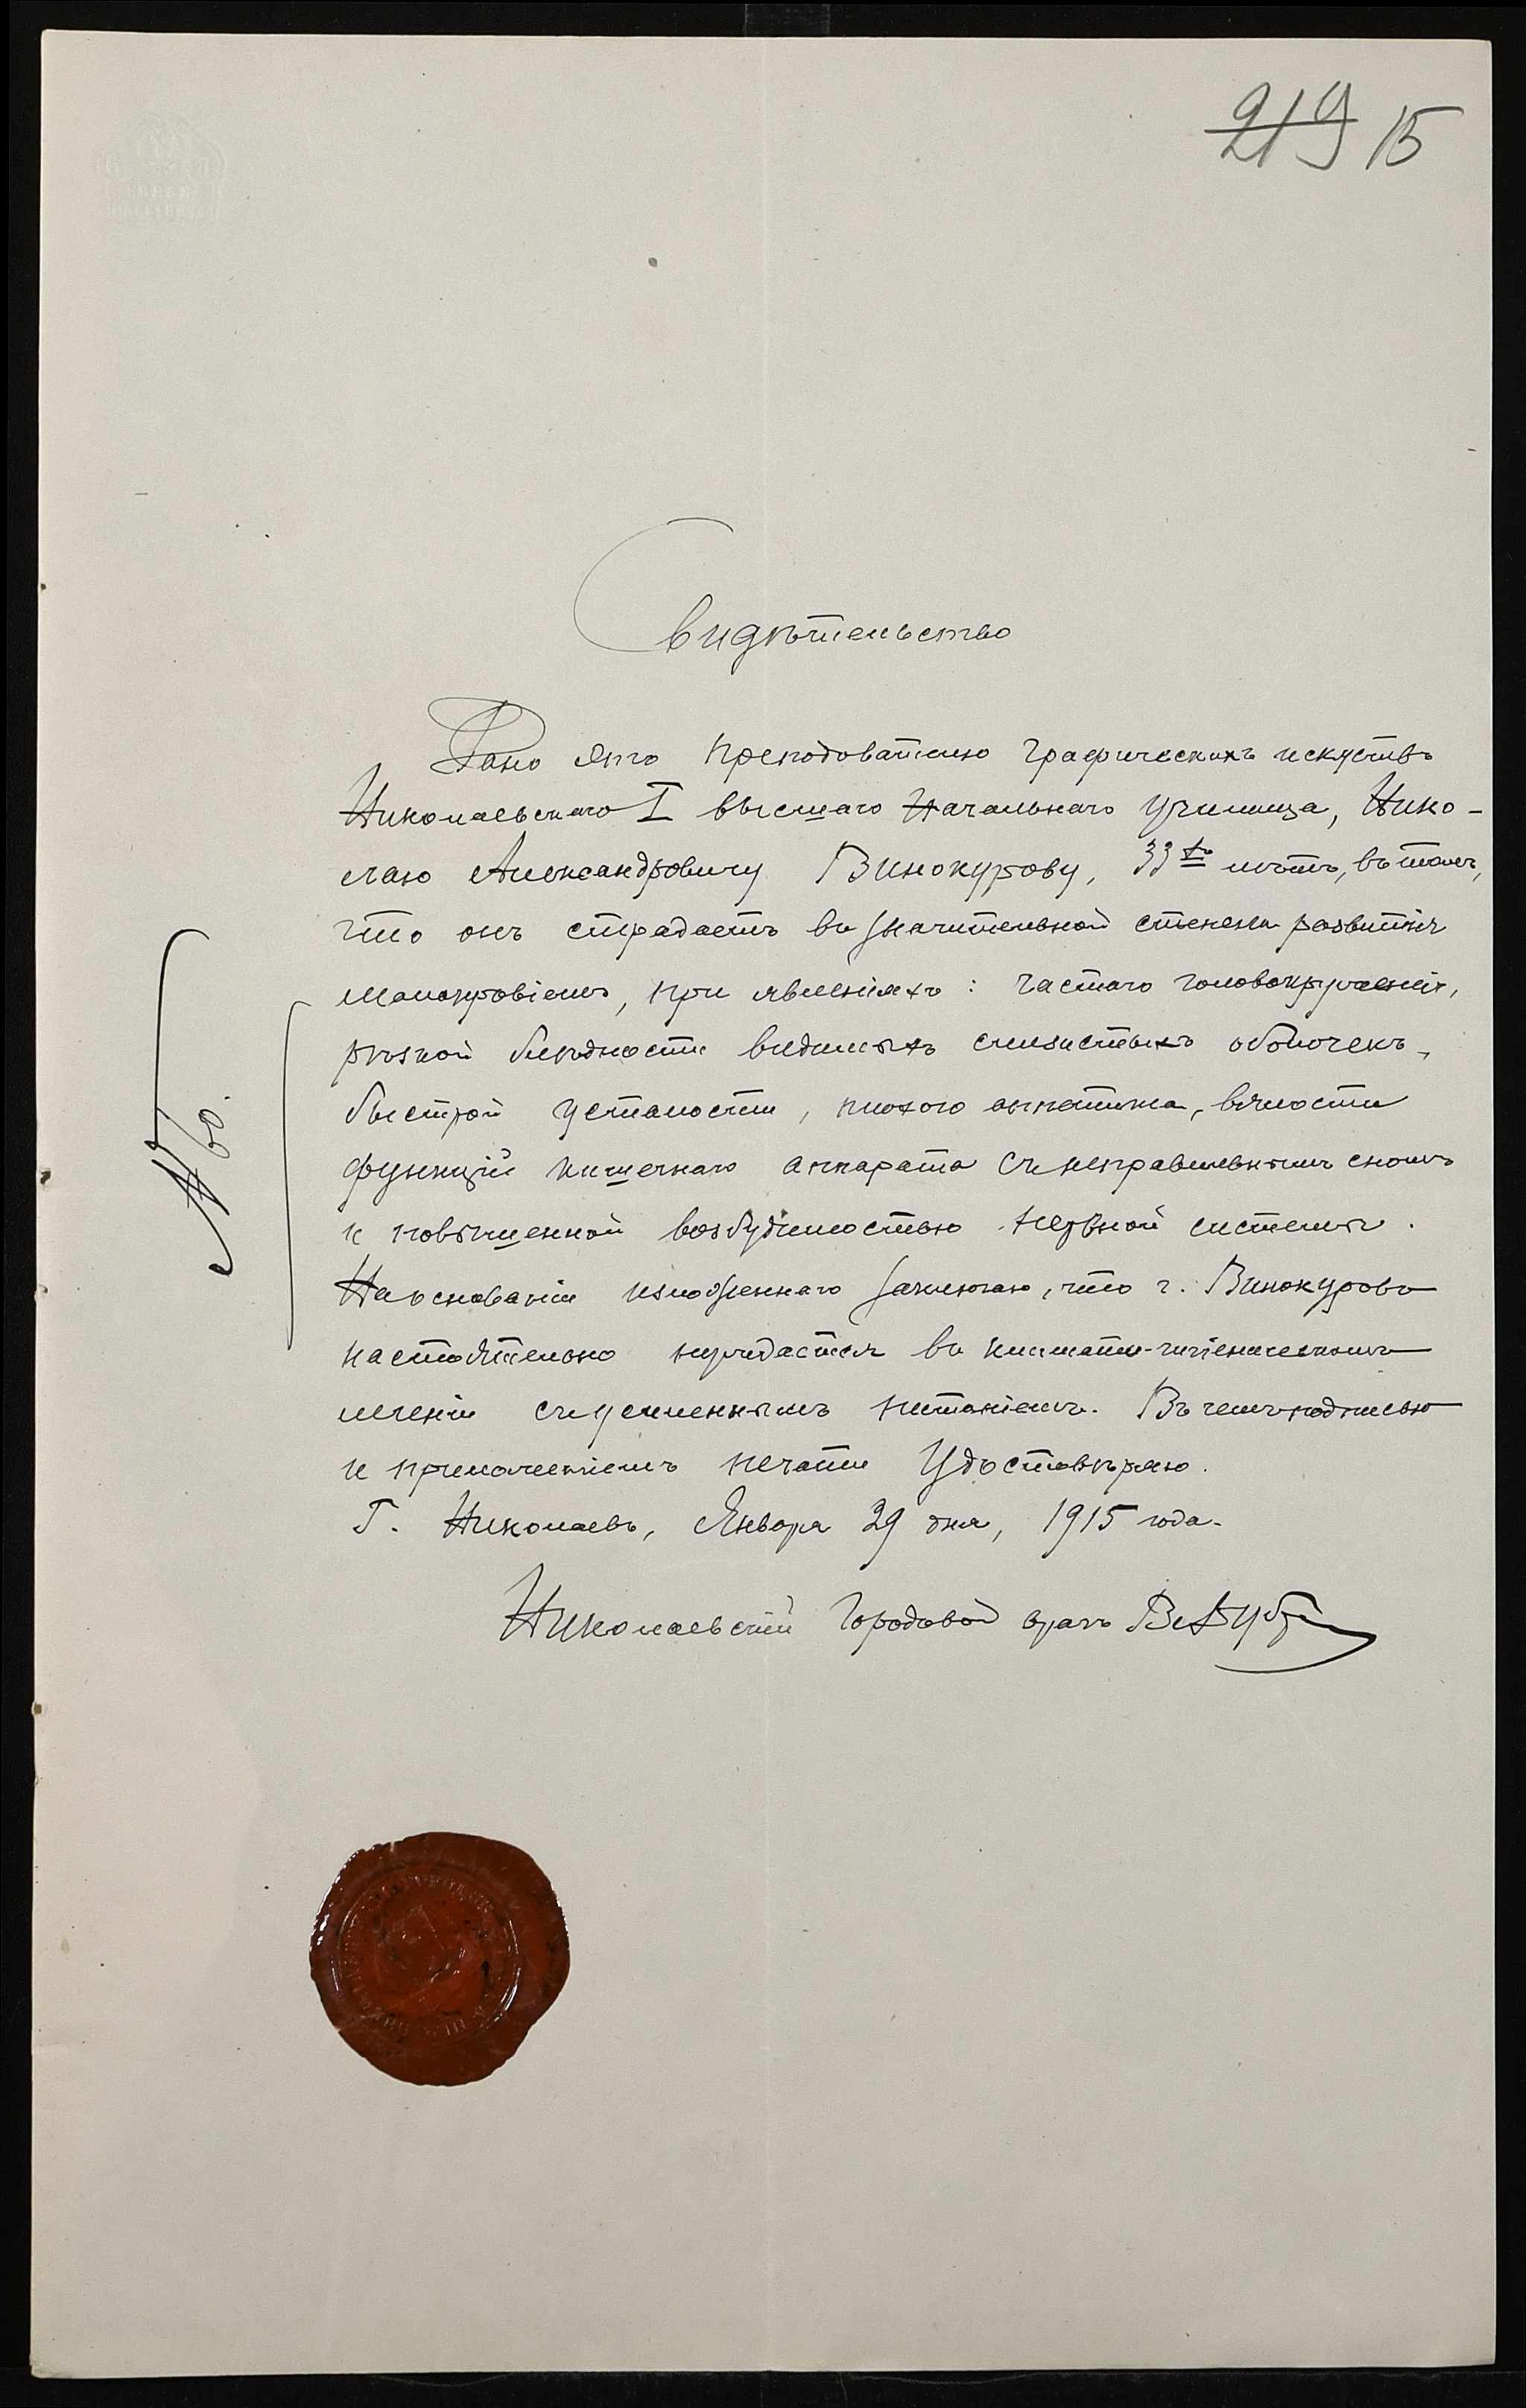 219 15
Свидѣтельство
Дано это преподователю графическихъ искуствъ
Николаевскаго I высшаго Начальнаго училища, Нико-
лаю Александровичу Винокурову, 33хъ лѣтъ, въ томъ,
что онъ страдаетъ въ значительной степени развитія
малокровіемъ, при явленіяхъ: частаго головокруженія,
рѣзкой блѣдности видимыхъ слизистыхъ оболочекъ,
быстрой усталости, плохого аппетита, вялости
функцій кишечнаго аппарата съ неправильнымъ сномъ
и повышенной возбудимостью нервной системы.
На основаніи изложеннаго заключаю, что г. Винокуровъ
настоятельно нуждается въ климато-гигіеническомъ
леченіи съ усиленнымъ питаніемъ. Въ чемъ подписью
и приложеніемъ печати удостовѣряю.
Г. Николаевъ, Января 29 дня, 1915 года.
Николаевскій Городовой врачъ
№ 60.